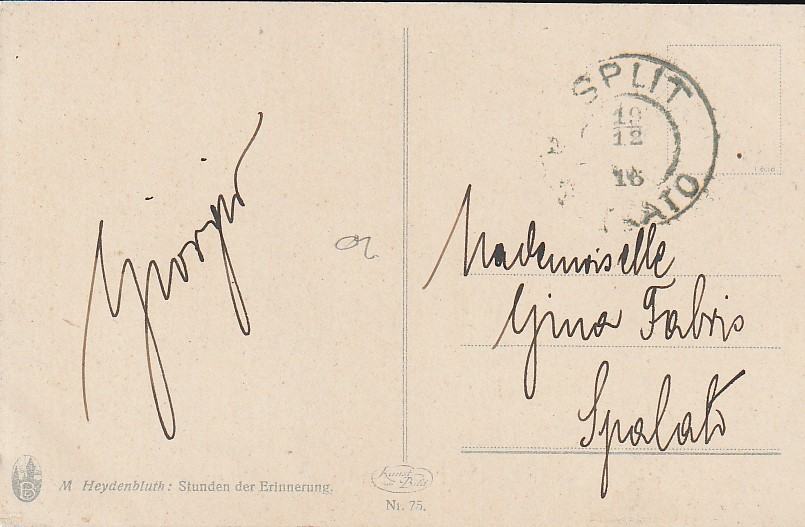 Giorgio
SPLIT
19
12
16
Mademoiselle
Gina Fabris
Spalato
M Heydenbluth: Stunden der Erinnerung.
Kunst
Bild
Nr. 75.